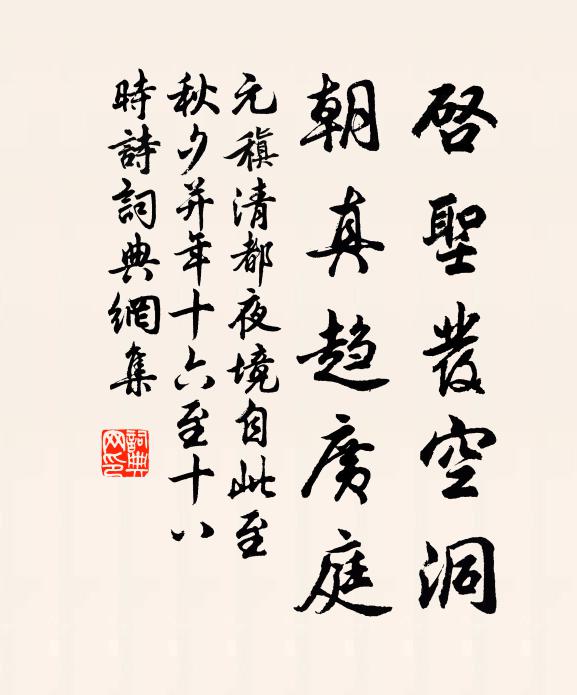 啓聖發空洞
朝真趨廣庭
元稹清都夜境自此至
秋夕并年十六至十八
時詩詞典網集
詞典網印